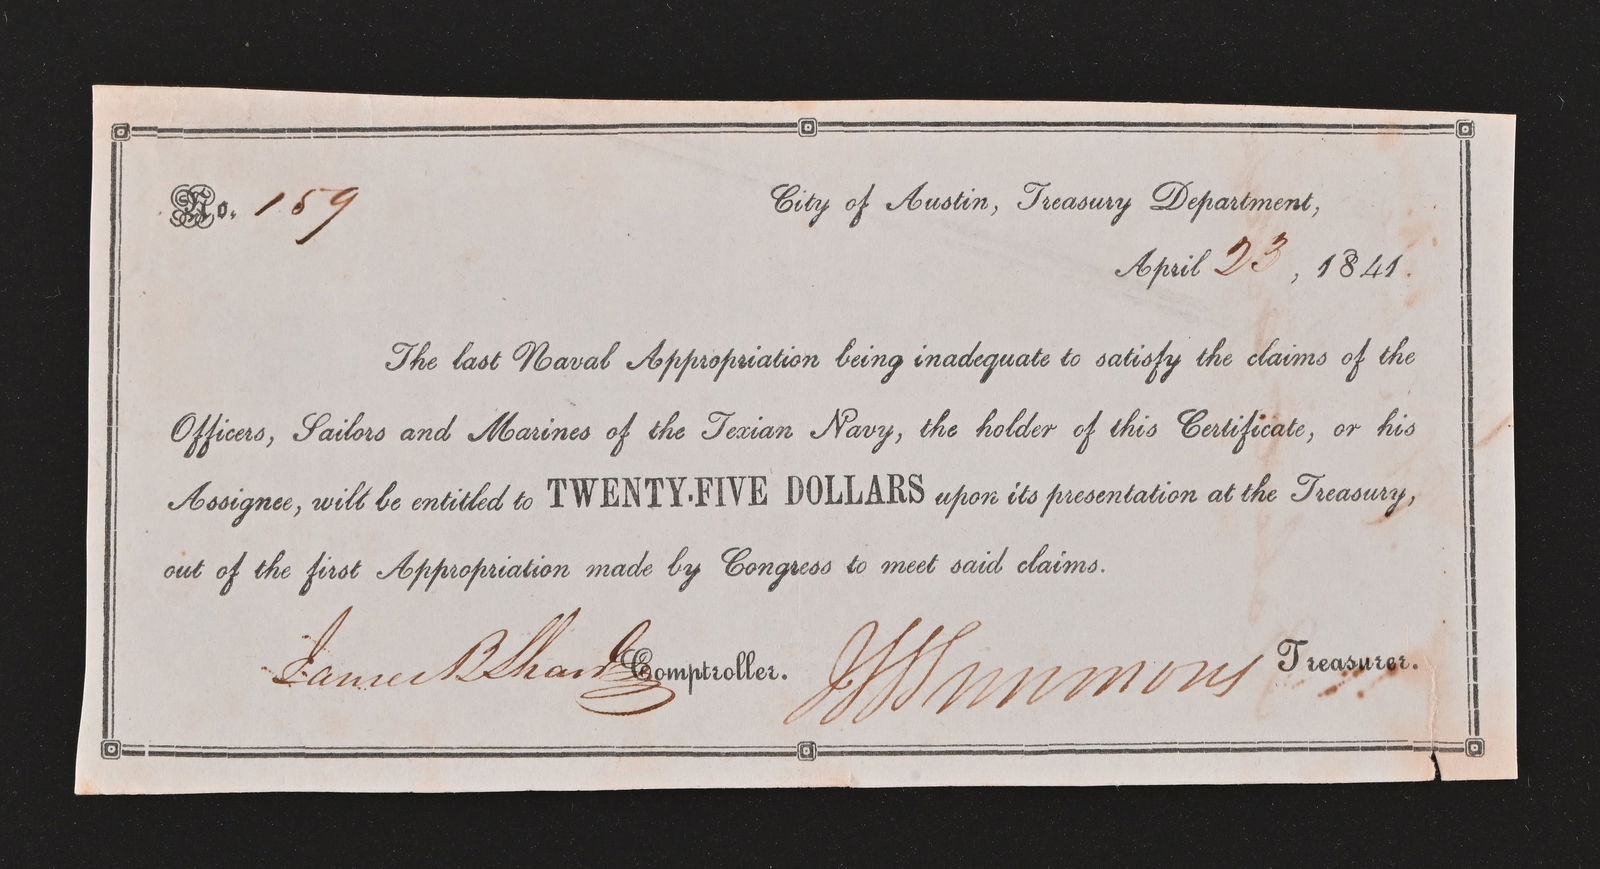 No. 159
City of Austin, Treasury Department,
April 23, 1841.
The last Naval Appropriation being inadequate to satisfy the claims of the
Officers, Sailors and Marines of the Texian Navy, the holder of this Certificate, or his
Assignee, will be entitled to TWENTY-FIVE DOLLARS upon its presentation at the Treasury,
out of the first Appropriation made by Congress to meet said claims.
James B Shaw Comptroller. Simmons Treasurer.